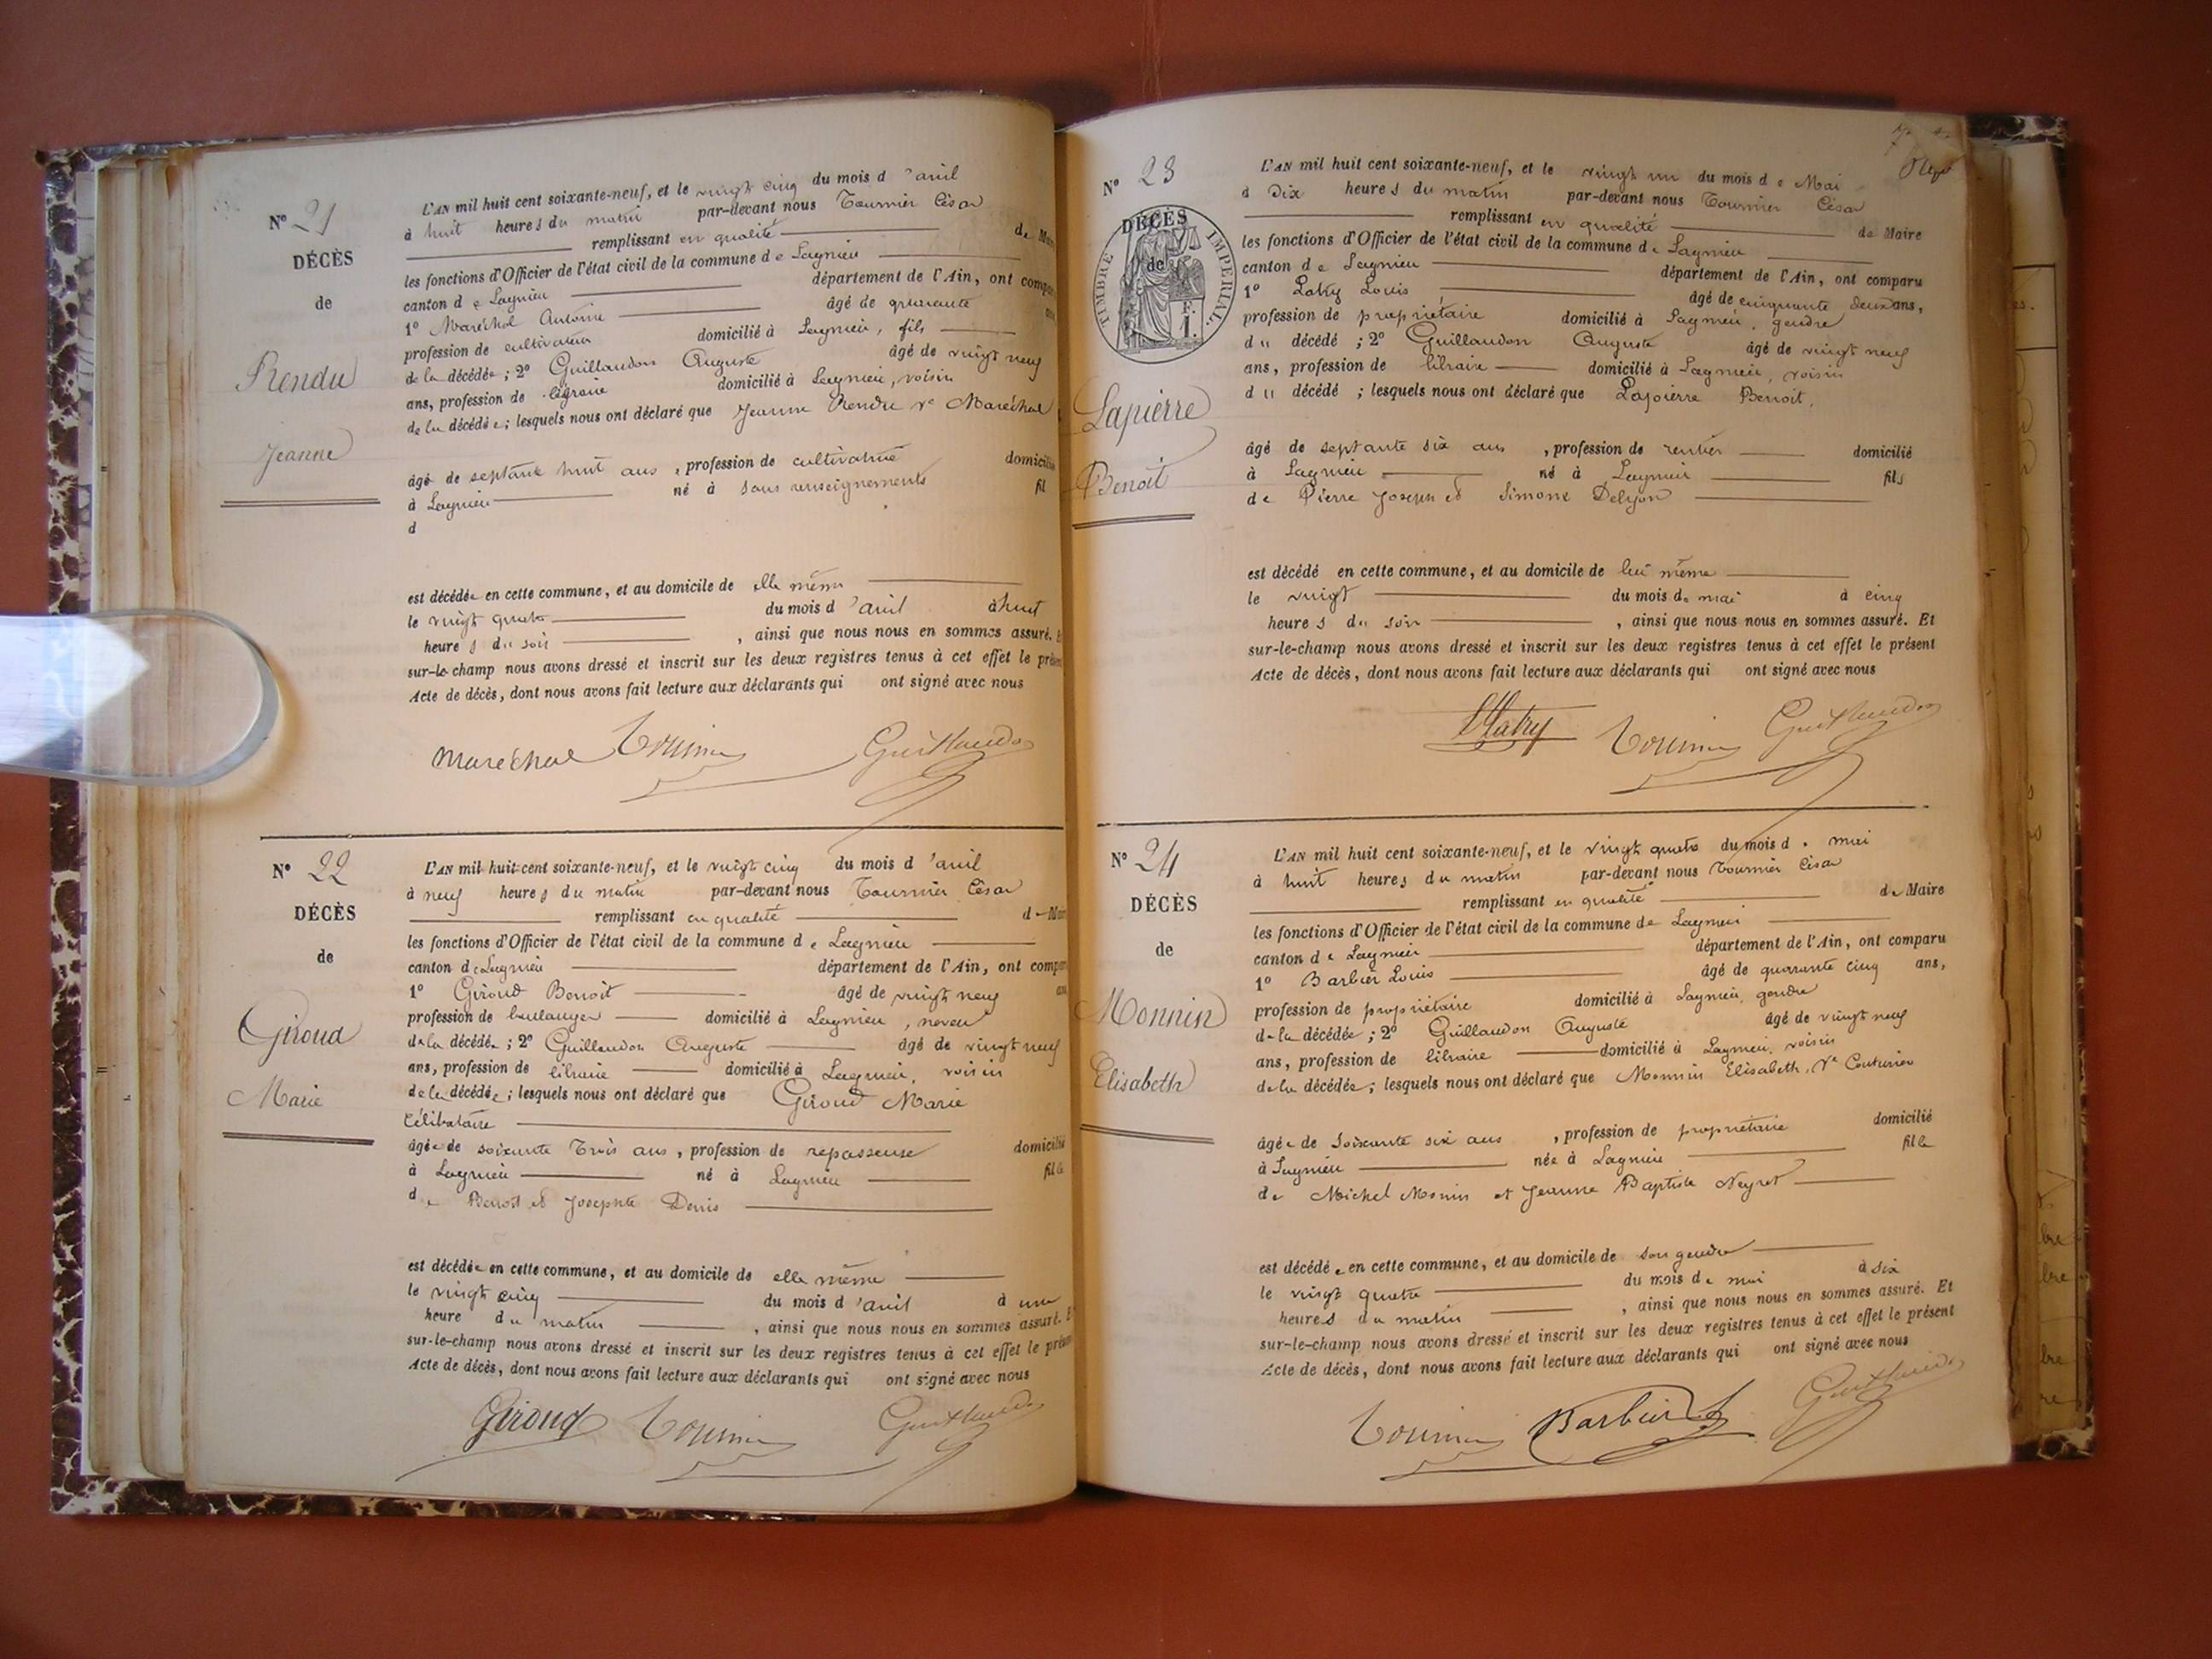 N° 21
DÉCÈS
de
Rendu
Jeanne
L'AN mil huit cent soixante-neuf, et le vingt cinq du mois d'avril
à huit heures du matin par-devant nous Tournier César
remplissant en qualité de
les fonctions d'Officier de l'état civil de la commune de Lagnieu
canton de Lagnieu département de l'Ain, ont
1° Maréchal Antoine âgé de quarante
profession de cultivateur domicilié à Lagnieu, fils
de la décédée ; 2° Guillaudon Auguste âgé de vingt neuf
ans, profession de libraire domicilié à Lagnieu, voisin
de la décédée ; lesquels nous ont déclaré que Jeanne Rendu Ve Maréchal
âgé de septante huit ans, profession de cultivatrice
à Lagnieu né à sans renseignements fil
d
est décédée en cette commune, et au domicile de elle même
le vingt quatre du mois d'avril à huit
heures du soir, ainsi que nous nous en sommes assuré.
sur-le-champ nous avons dressé et inscrit sur les deux registres tenus à cet effet le
Acte de décès, dont nous avons fait lecture aux déclarants qui ont signé avec nous
Maréchal Guillaudon
N° 22
DÉCÈS
de
Giroud
Marie
L'AN mil huit cent soixante-neuf, et le vingt cinq du mois d'avril
à neuf heures du matin par-devant nous Tournier César
remplissant en qualité de
les fonctions d'Officier de l'état civil de la commune de Lagnieu
canton de Lagnieu département de l'Ain, ont
1° Giroud Benoit âgé de vingt neuf
profession de boulanger domicilié à Lagnieu, neveu
de la décédée ; 2° Guillaudon Auguste âgé de vingt neuf
ans, profession de libraire domicilié à Lagnieu, voisin
de la décédée ; lesquels nous ont déclaré que Giroud Marie
célibataire
âgée de soixante trois ans, profession de repasseuse
à Lagnieu né à Lagnieu fille
de Benoit et Josephte Denis
est décédée en cette commune, et au domicile de elle même
le vingt cinq du mois d'avril à une
heure du matin, ainsi que nous nous en sommes assuré.
sur-le-champ nous avons dressé et inscrit sur les deux registres tenus à cet effet le
Acte de décès, dont nous avons fait lecture aux déclarants qui ont signé avec nous
Giroud Guillaudon
N° 23
TIMBRE IMPÉRIAL
DÉCÈS
de
Lapierre
Benoit
L'AN mil huit cent soixante-neuf, et le vingt un du mois de Mai
à Dix heures du matin par-devant nous Tournier César
remplissant en qualité de Maire
les fonctions d'Officier de l'état civil de la commune de Lagnieu
canton de Lagnieu département de l'Ain, ont comparu
1° Louis âgé de cinquante deux ans,
profession de propriétaire domicilié à Lagnieu, gendre
du décédé ; 2° Guillaudon Auguste âgé de vingt neuf
ans, profession de libraire domicilié à Lagnieu, voisin
du décédé ; lesquels nous ont déclaré que Lapierre Benoit,
âgé de septante six ans, profession de rentier domicilié
à Lagnieu né à Lagnieu fils
de Pierre Joseph et Simone Delyon
est décédé en cette commune, et au domicile de lui même
le vingt du mois de mai à cinq
heures du soir, ainsi que nous nous en sommes assuré. Et
sur-le-champ nous avons dressé et inscrit sur les deux registres tenus à cet effet le présent
Acte de décès, dont nous avons fait lecture aux déclarants qui ont signé avec nous
Guillaudon
N° 24
DÉCÈS
de
Monnin
Elisabeth
L'AN mil huit cent soixante-neuf, et le vingt quatre du mois d. mai
à huit heures du matin par-devant nous Tournier César
remplissant en qualité de Maire
les fonctions d'Officier de l'état civil de la commune de Lagnieu
canton de Lagnieu département de l'Ain, ont comparu
1° Barbier Louis âgé de quarante cinq ans,
profession de propriétaire domicilié à Lagnieu, gendre
de la décédée ; 2° Guillaudon Auguste âgé de vingt neuf
ans, profession de libraire domicilié à Lagnieu, voisin
de la décédée ; lesquels nous ont déclaré que Monnin Elisabeth, Ve Couturier
âgée de soixante six ans, profession de propriétaire domicilié
à Lagnieu née à Lagnieu fille
de Michel Monin et Jeanne Baptiste Neyret
est décédée en cette commune, et au domicile de son gendre
le vingt quatre du mois de mai à six
heures du matin, ainsi que nous nous en sommes assuré. Et
sur-le-champ nous avons dressé et inscrit sur les deux registres tenus à cet effet le présent
Acte de décès, dont nous avons fait lecture aux déclarants qui ont signé avec nous
Barbier Guillaudon